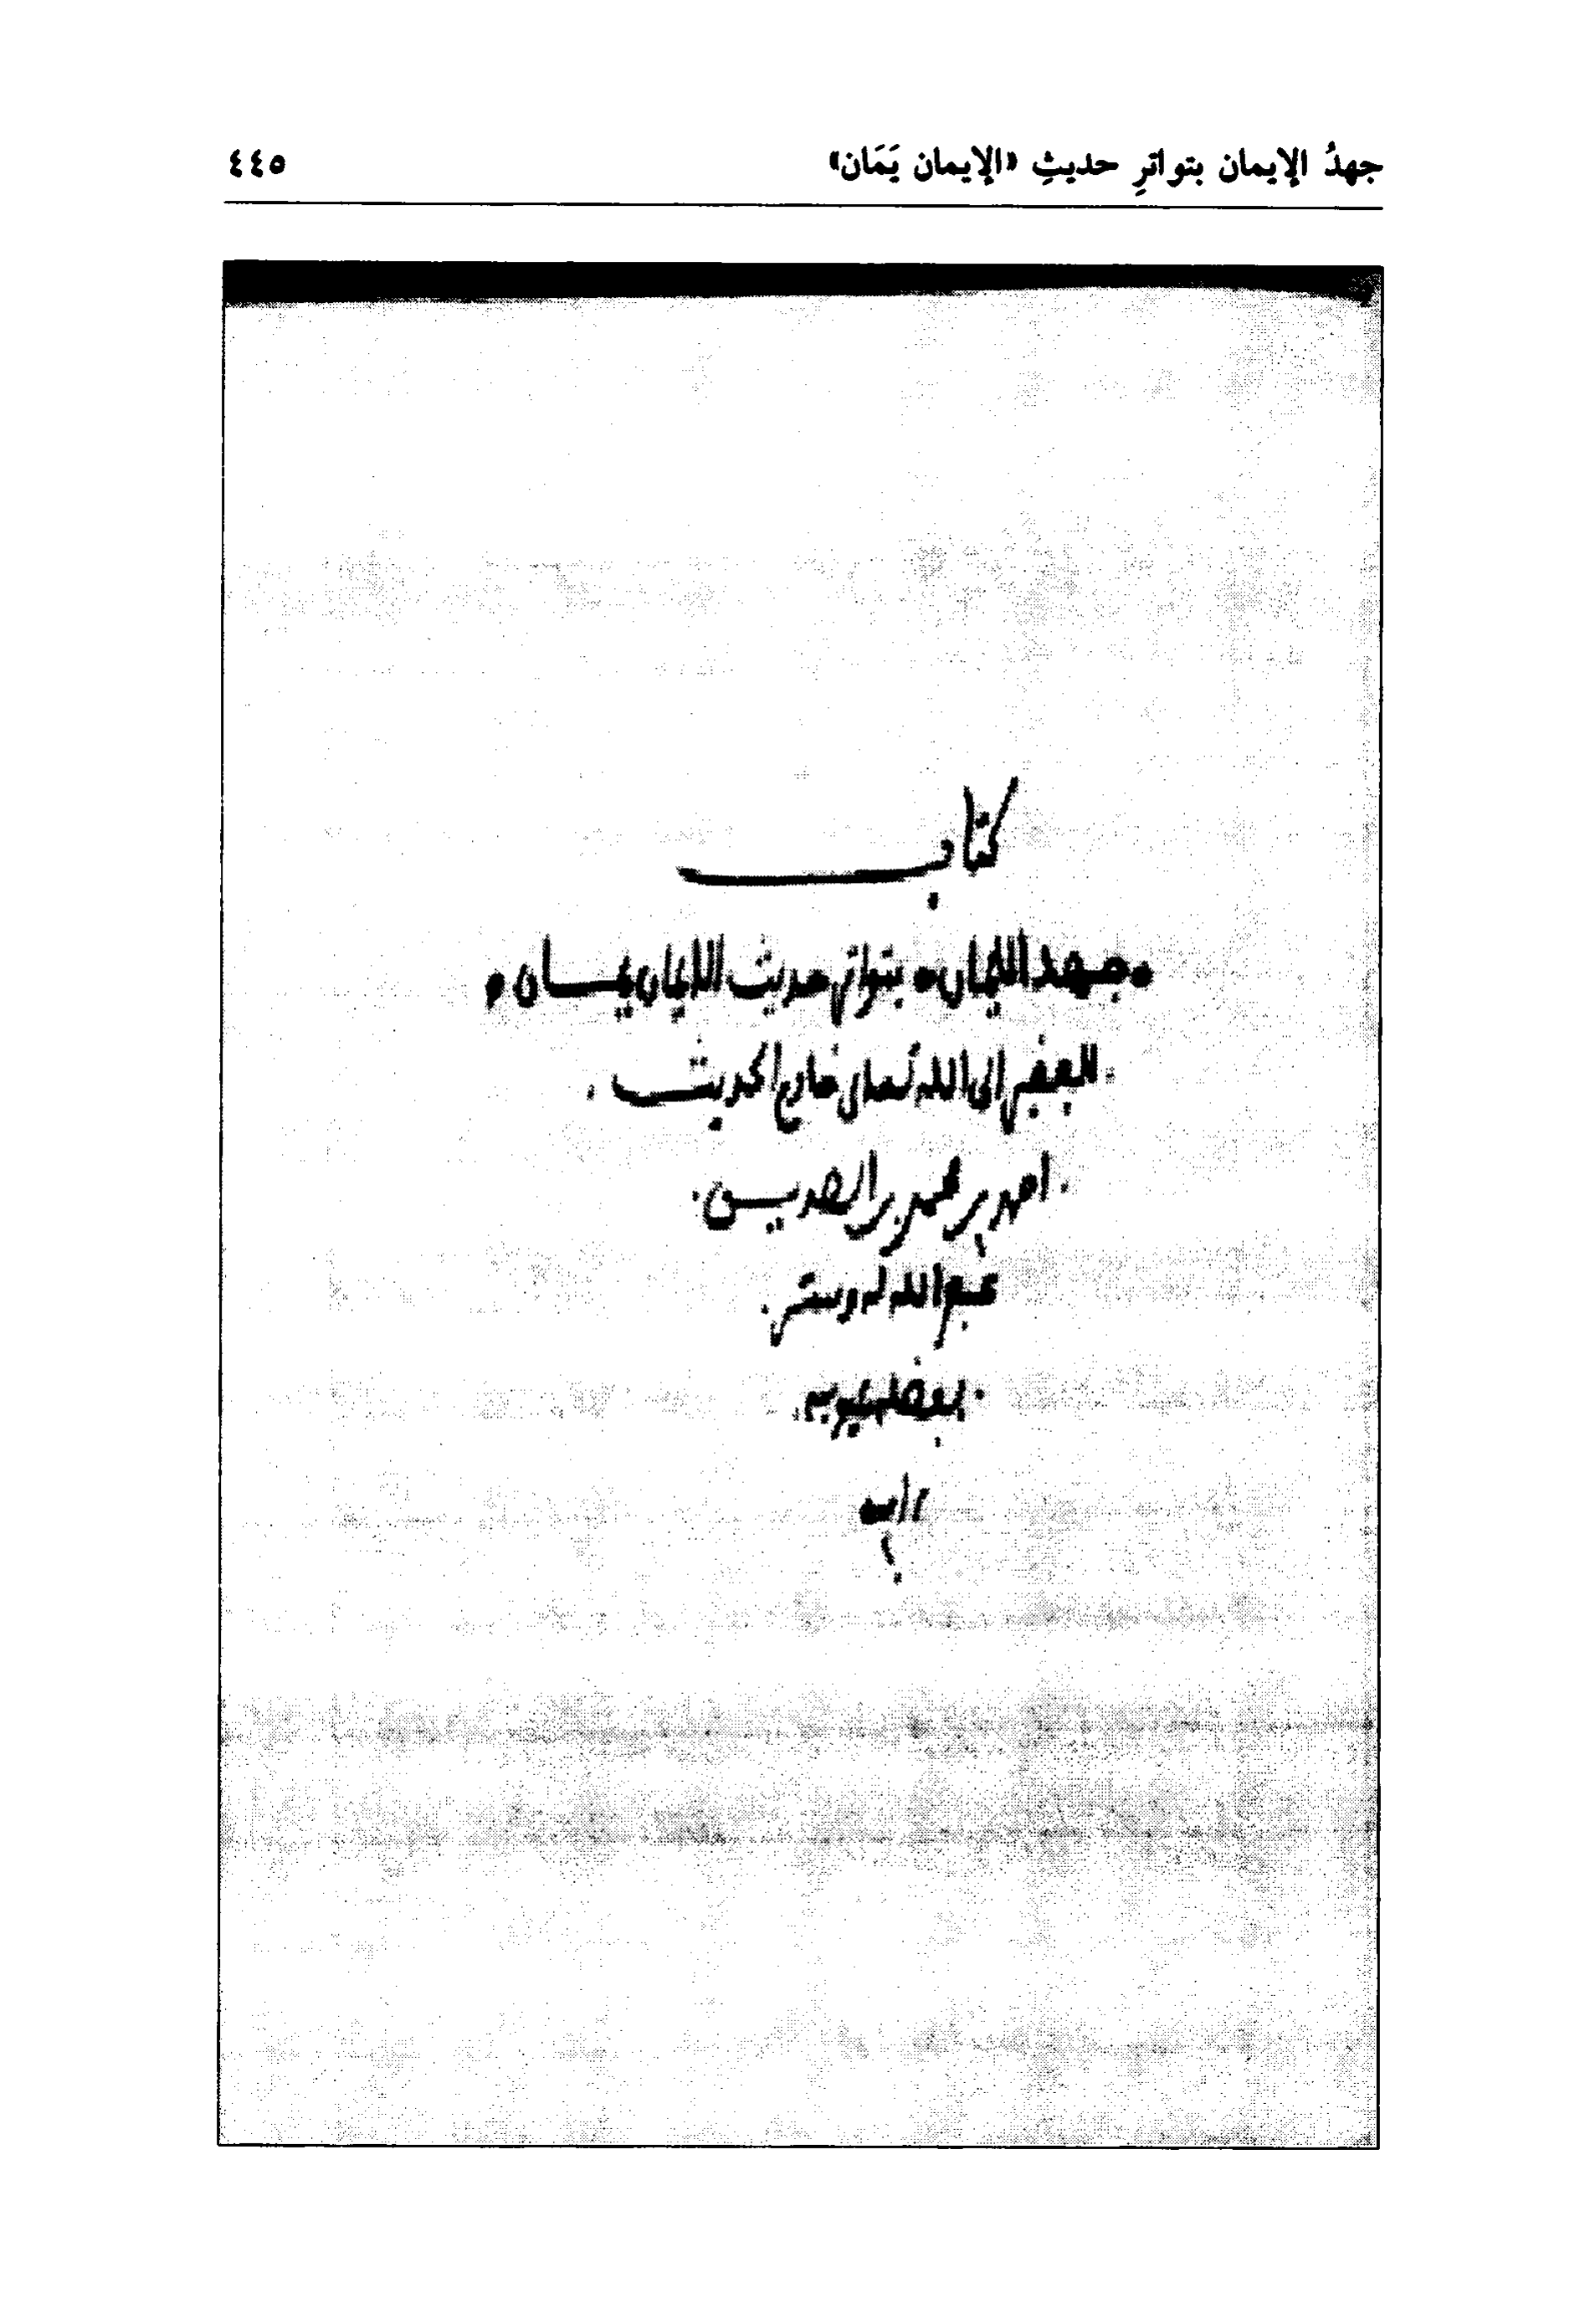 جهدُ الإيمان بتواترِ حديثِ «الإيمان يَمَان»
٤٤٥
كتاب
جهد الايمان بتواتر حديث الايمان يمان
للفقير الى الله تعالى خادم الحديث
احمد بن محمد بن الصديق
غفر الله له وستر
بفضله عيوبه
ءامين